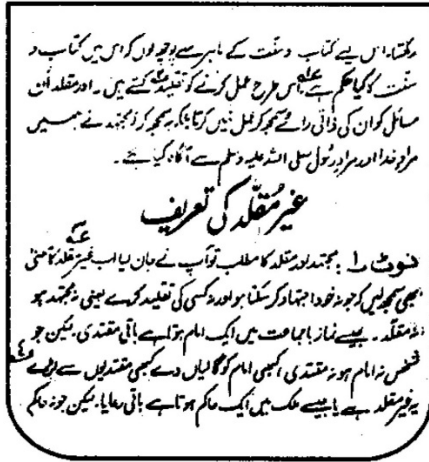 رکھتا۔ اس لیے کتاب و سنت کے ماہر سے پوچھ لوں کہ اس میں کتاب و
سنت کا کیا حکم ہے۔ اس طرح عمل کرنے کو تقلید کہتے ہیں۔ اور مقلد ان
مسائل کو ان کی ذاتی رائے سمجھ کر عمل نہیں کرتا بلکہ یہ سمجھ کر کہ مجتہد نے ہمیں
مراد خدا اور مراد رسول صلی اللہ علیہ وسلم سے آگاہ کیا ہے۔
غیر مُقلّد کی تعریف
نوٹ ۱: مجتہد اور مقلد کا مطلب تو آپ نے جان لیا اب غیر مقلد کا معنی
بھی سمجھ لیں کہ جو نہ خود اجتہاد کر سکتا ہو اور نہ کسی کی تقلید کرے یعنی نہ مجتہد ہو
نہ مقلد۔ جیسے نماز باجماعت میں ایک امام ہوتا ہے باقی مقتدی، لیکن جو
شخص نہ امام ہو نہ مقتدی، کبھی امام کو گالیاں دے کبھی مقتدیوں سے لڑے
یہ غیر مقلد ہے یا جیسے ملک میں ایک حاکم ہوتا ہے باقی رعایا۔ لیکن جو نہ حاکم